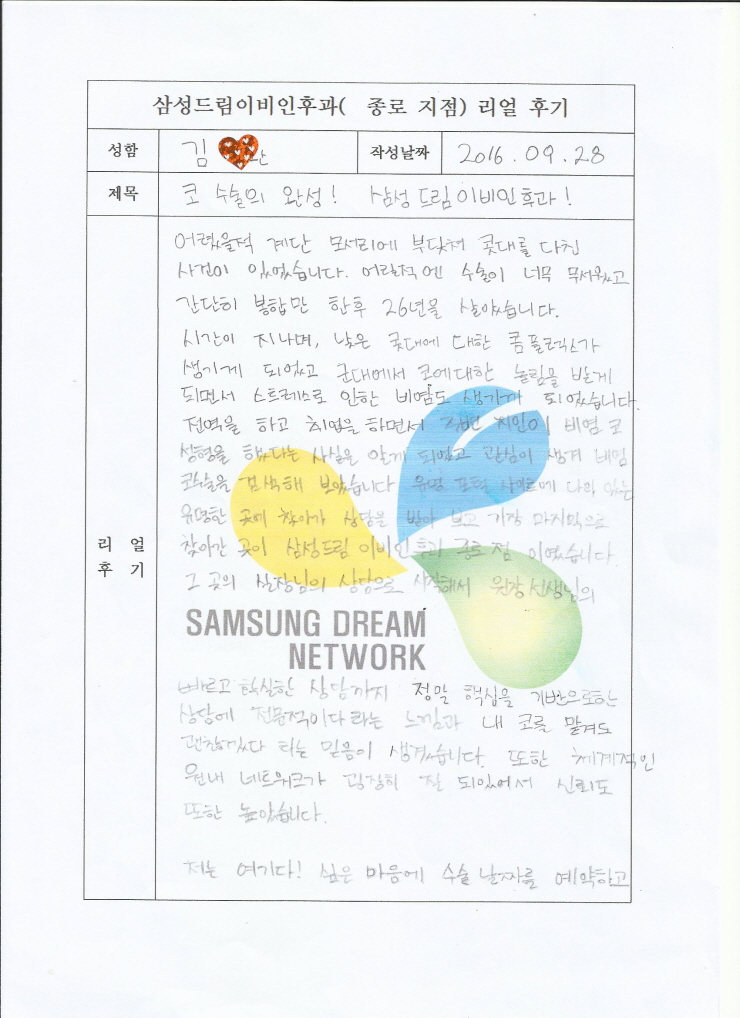 삼성드림이비인후과( 종로 지점) 리얼 후기
성함 김 작성날짜 2016.09.28
제목 코 수술의 완성! 삼성드림이비인후과!
어렸을적 계단 모서리에 부딪쳐 콧대를 다친
사건이 있었습니다. 어릴적엔 수술이 너무 무서웠고
간단히 봉합만 한후 26년을 살았습니다.
시간이 지나며, 낮은 콧대에 대한 콤플렉스가
생기게 되었고 군대에서 코에대한 놀림을 받게
되면서 스트레스로 인한 비염도 생기게 되었습니다.
전역을 하고 취업을 하면서 주변 지인이 비염 코
성형을 했다는 사실을 알게 되었고 관심이 생겨 매일
코수술을 검색해 보았습니다. 유명 포털 사이트에 나와 있는
유명한 곳에 찾아가 상담을 받아 보고 가장 마지막으로
찾아간 곳이 삼성드림 이비인후과 종로점 이었습니다.
그 곳의 실장님의 상담으로 시작해서 원장선생님의
리 얼
후 기
SAMSUNG DREAM
NETWORK
빠르고 확실한 상담까지 정말 핵심을 기반으로한
상담에 전문적이다 라는 느낌과 내 코를 맡겨도
괜찮겠다 라는 믿음이 생겼습니다. 또한 체계적인
원내 네트워크가 굉장히 잘 되있어서 신뢰도
또한 높았습니다.
저는 여기다! 싶은 마음에 수술날짜를 예약하고